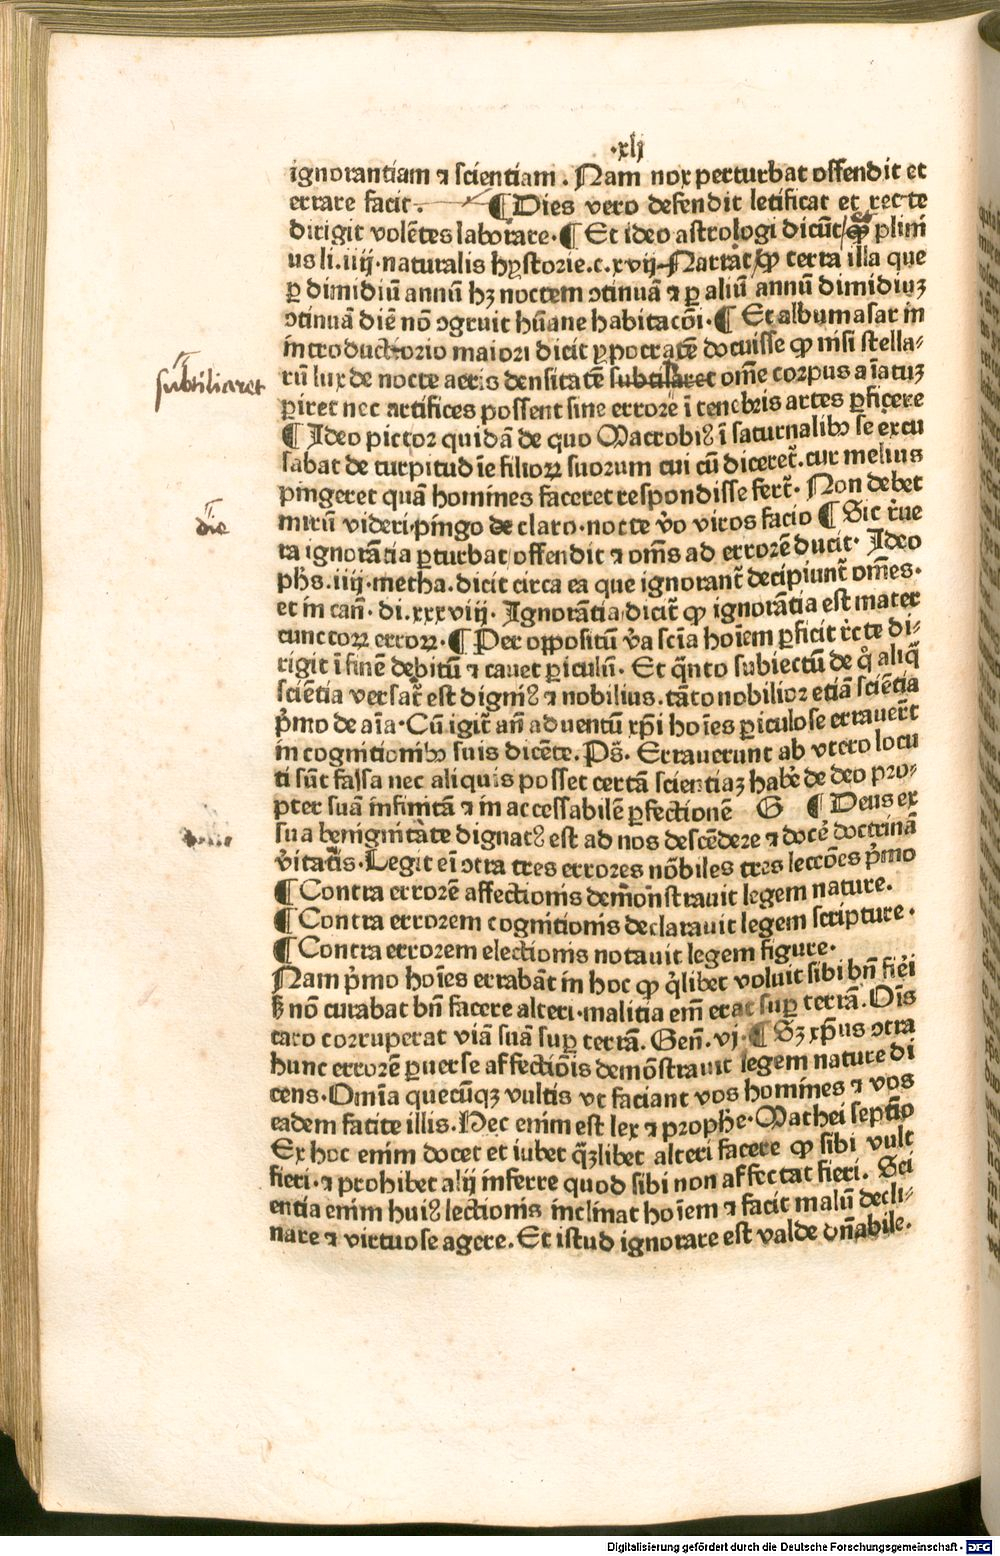 ·xlj
ignorantiam ⁊ scientiam. Nam nox perturbat offendit et
errare facit. ¶ Dies vero defendit letificat et recte
dirigit volẽtes laborare. ¶ Et ideo astrologi dicũt/ꝙ̃ plini
us li. iiij. naturalis hystorie. c. xvij. Narrat̃/ꝙ terra illa que
ꝑ dimidiũ annũ hꝫ noctem ↄtinuã ⁊ ꝑ aliũ annũ dimidiuꝫ
ↄtinuã diẽ nõ ↄgruit hũane habitacõi. ¶ Et albumasar in
introductorio maiori dicit ypocratẽ docuisse ꝙ nisi stella-
subtiliaret
rũ lux de nocte aeris densitatẽ om̃e corpus aĩatuꝫ
ꝑiret nec artifices possent sine errore ĩ tenebris artes ꝑficere
¶ Ideo pictor quidã de quo Macrobiꝰ ĩ saturnalibꝫ se excu
sabat de turpitudĩe filioꝝ suorum cui cũ diceret̃. cur melius
pingeret quã homines faceret respondisse fert̃. Non debet
die
mirũ videri. pingo de claro. nocte ṽo viros facio ¶ Sic r̃ue
ra ignorãtia ꝑturbat/offendit ⁊ om̃s ad errorẽ ducit. Ideo
pħs. iiij. metha. dicit circa ea que ignorant̃ decipiunt̃ om̃es.
et in cañ. di. xxxviij. Ignorãtia dicit̃ ꝙ ignorãtia est mater
cunctoꝝ erroꝝ. ¶ Per oppositũ ṽa scĩa hoĩem ꝑficit r̃cte di-
rigit ĩ finẽ debitũ ⁊ cauet ꝑiculũ. Et q̃nto subiectũ de q̊ aliq̃
sciẽtia versat̃ est digniꝰ ⁊ nobilius. tãto nobilior etiã sciẽtia
p̃mo de aĩa. Cũ igit̃ añ aduentũ xp̃i hoĩes ꝑiculose erraueř̃t
in cognitionibꝫ suis dicẽte. Ps̃. Errauerunt ab vtero locu
ti sũt falsa nec aliquis posset certã scientiaꝫ habẽ de deo pro-
pter suã infinitã ⁊ inaccessabilẽ ꝑfectionẽ G ¶ Deus ex
sua benignitate dignatꝰ est ad nos descẽdere ⁊ docẽ doctrinã
ṽitatis. Legit eĩ ↄtra tres errores nõbiles tres leccões p̃mo
¶ Contra errorẽ affectionis dem̃onstrauit legem nature.
¶ Contra errorem cognitionis declarauit legem scripture.
¶ Contra errorem electionis notauit legem figure.
Nam p̃mo hoĩes errabãt in hoc ꝙ q̃libet voluit sibi bñ fieri
ẜ nõ curabat bñ facere alteri. malitia em̃ erat suꝑ terrã. Om̃s
caro corruperat viã suã suꝑ terrã. Geñ. vj. ¶ Sꝫ xp̃us ↄtra
hunc errorẽ ꝑuerse affectiõis demõstrauit legem nature di
cens. Omĩa quecũqꝫ vultis vt faciant vos homines ⁊ vos
eadem facite illis. Hec enim est lex ⁊ prophe. Mathei septĩo
Ex hoc enim docet et iubet q̃ꝫlibet alteri facere ꝙ sibi vult
fieri. ⁊ prohibet alij inferre quod sibi non affectat fieri. Sci
entia enim huiꝰ lectionis inclinat hoĩem ⁊ facit malũ decli-
nare ⁊ virtuose agere. Et istud ignorare est valde dñabile.
Digitalisierung gefördert durch die Deutsche Forschungsgemeinschaft - DFG